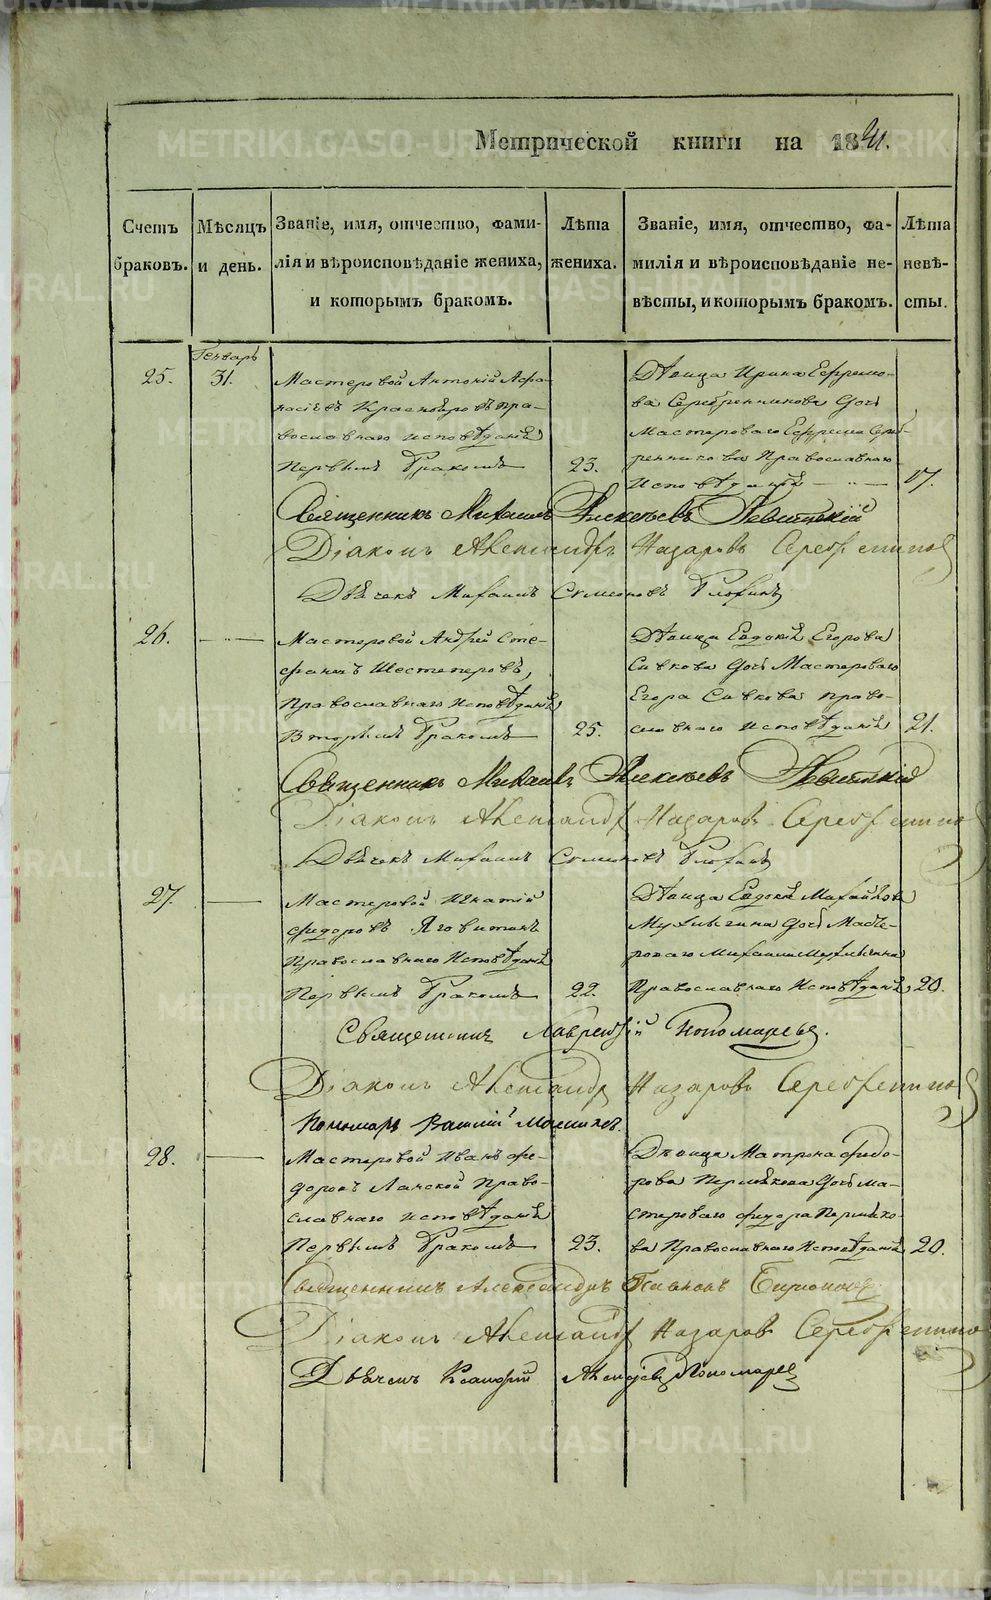 METRIKI.GASO-URAL.RU
Метрической книги на 1841.
Счетъ браковъ.
Мѣсяцъ и день.
Званіе, имя, отчество, фами-
лія и вѣроисповѣданіе жениха,
и которымъ бракомъ.
Лѣта жениха.
Званіе, имя, отчество, фа-
милія и вѣроисповѣданіе не-
вѣсты, и которымъ бракомъ.
Лѣта невѣ-
сты.
25.
Генварь
31.
Мастеровой Антоній Афа-
насіевъ пра-
вославнаго исповѣданія
Первымъ бракомъ
23.
Дѣвица Ирина Ефремо-
ва Серебренникова дочь
Мастероваго Ефрема Сереб-
ренникова Православнаго
Исповѣданія
17.
Священникъ Михаилъ Алексѣевъ Левитскій
Діаконъ Александръ Назаровъ
Дьячекъ Михаилъ Симеоновъ
26.
Мастеровой Андрей Сте-
фановъ Шестеперовъ,
Православнаго Исповѣданія
Вторымъ бракомъ
25.
Дѣвица Евдокія Егорова
Сивкова дочь Мастероваго
Егора Сивкова право-
славнаго Исповѣданія
21.
Священникъ Михаилъ Алексѣевъ Левитскій
Діаконъ Александръ Назаровъ
Дьячекъ Михаилъ Симеоновъ
27.
Мастеровой Игнатій
Федоровъ Яговитинъ
Православнаго Исповѣданія
Первымъ бракомъ
22.
Дѣвица Евдокія Михайлова
дочь Масте-
роваго Михаила
Православнаго Исповѣданія
20.
Священникъ Лаврентій Пономаревъ.
Діаконъ Александръ Назаровъ
Пономарь Василій
28.
Мастеровой Иванъ Фе-
доровъ Ланской Право-
славнаго исповѣданія
Первымъ бракомъ
23.
Дѣвица Матрона Федо-
рова Пермякова дочь ма-
стероваго Федора Пермяко-
ва Православнаго Исповѣданія
20.
Священникъ Александръ
Діаконъ Александръ Назаровъ
Дьячекъ Пономаревъ